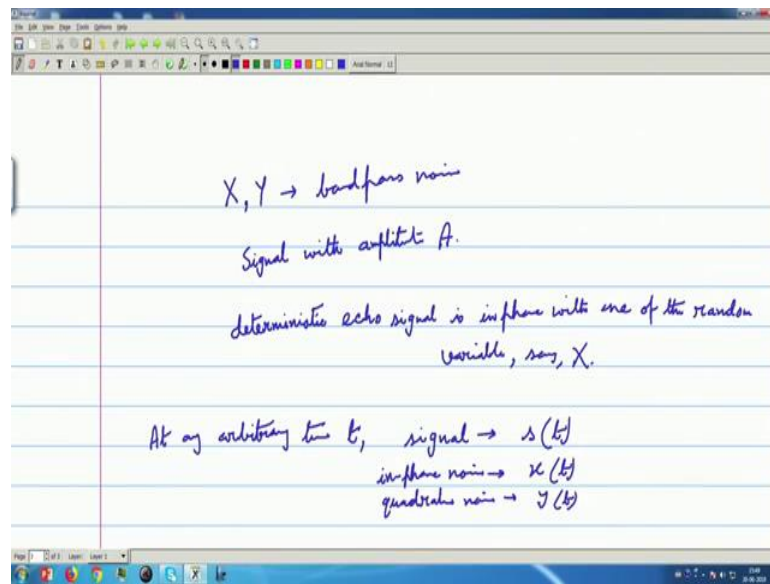 File Edit View Page Tools Options Help
Arial Normal 12
X, Y → bandpass noise
Signal with amplitude A.
deterministic echo signal is in phase with one of the random
variable, say, X.
At any arbitrary time t, signal → s(t)
in-phase noise → x(t)
quadrature noise → y(t)
Page 3 of 3 Layer: Layer 1